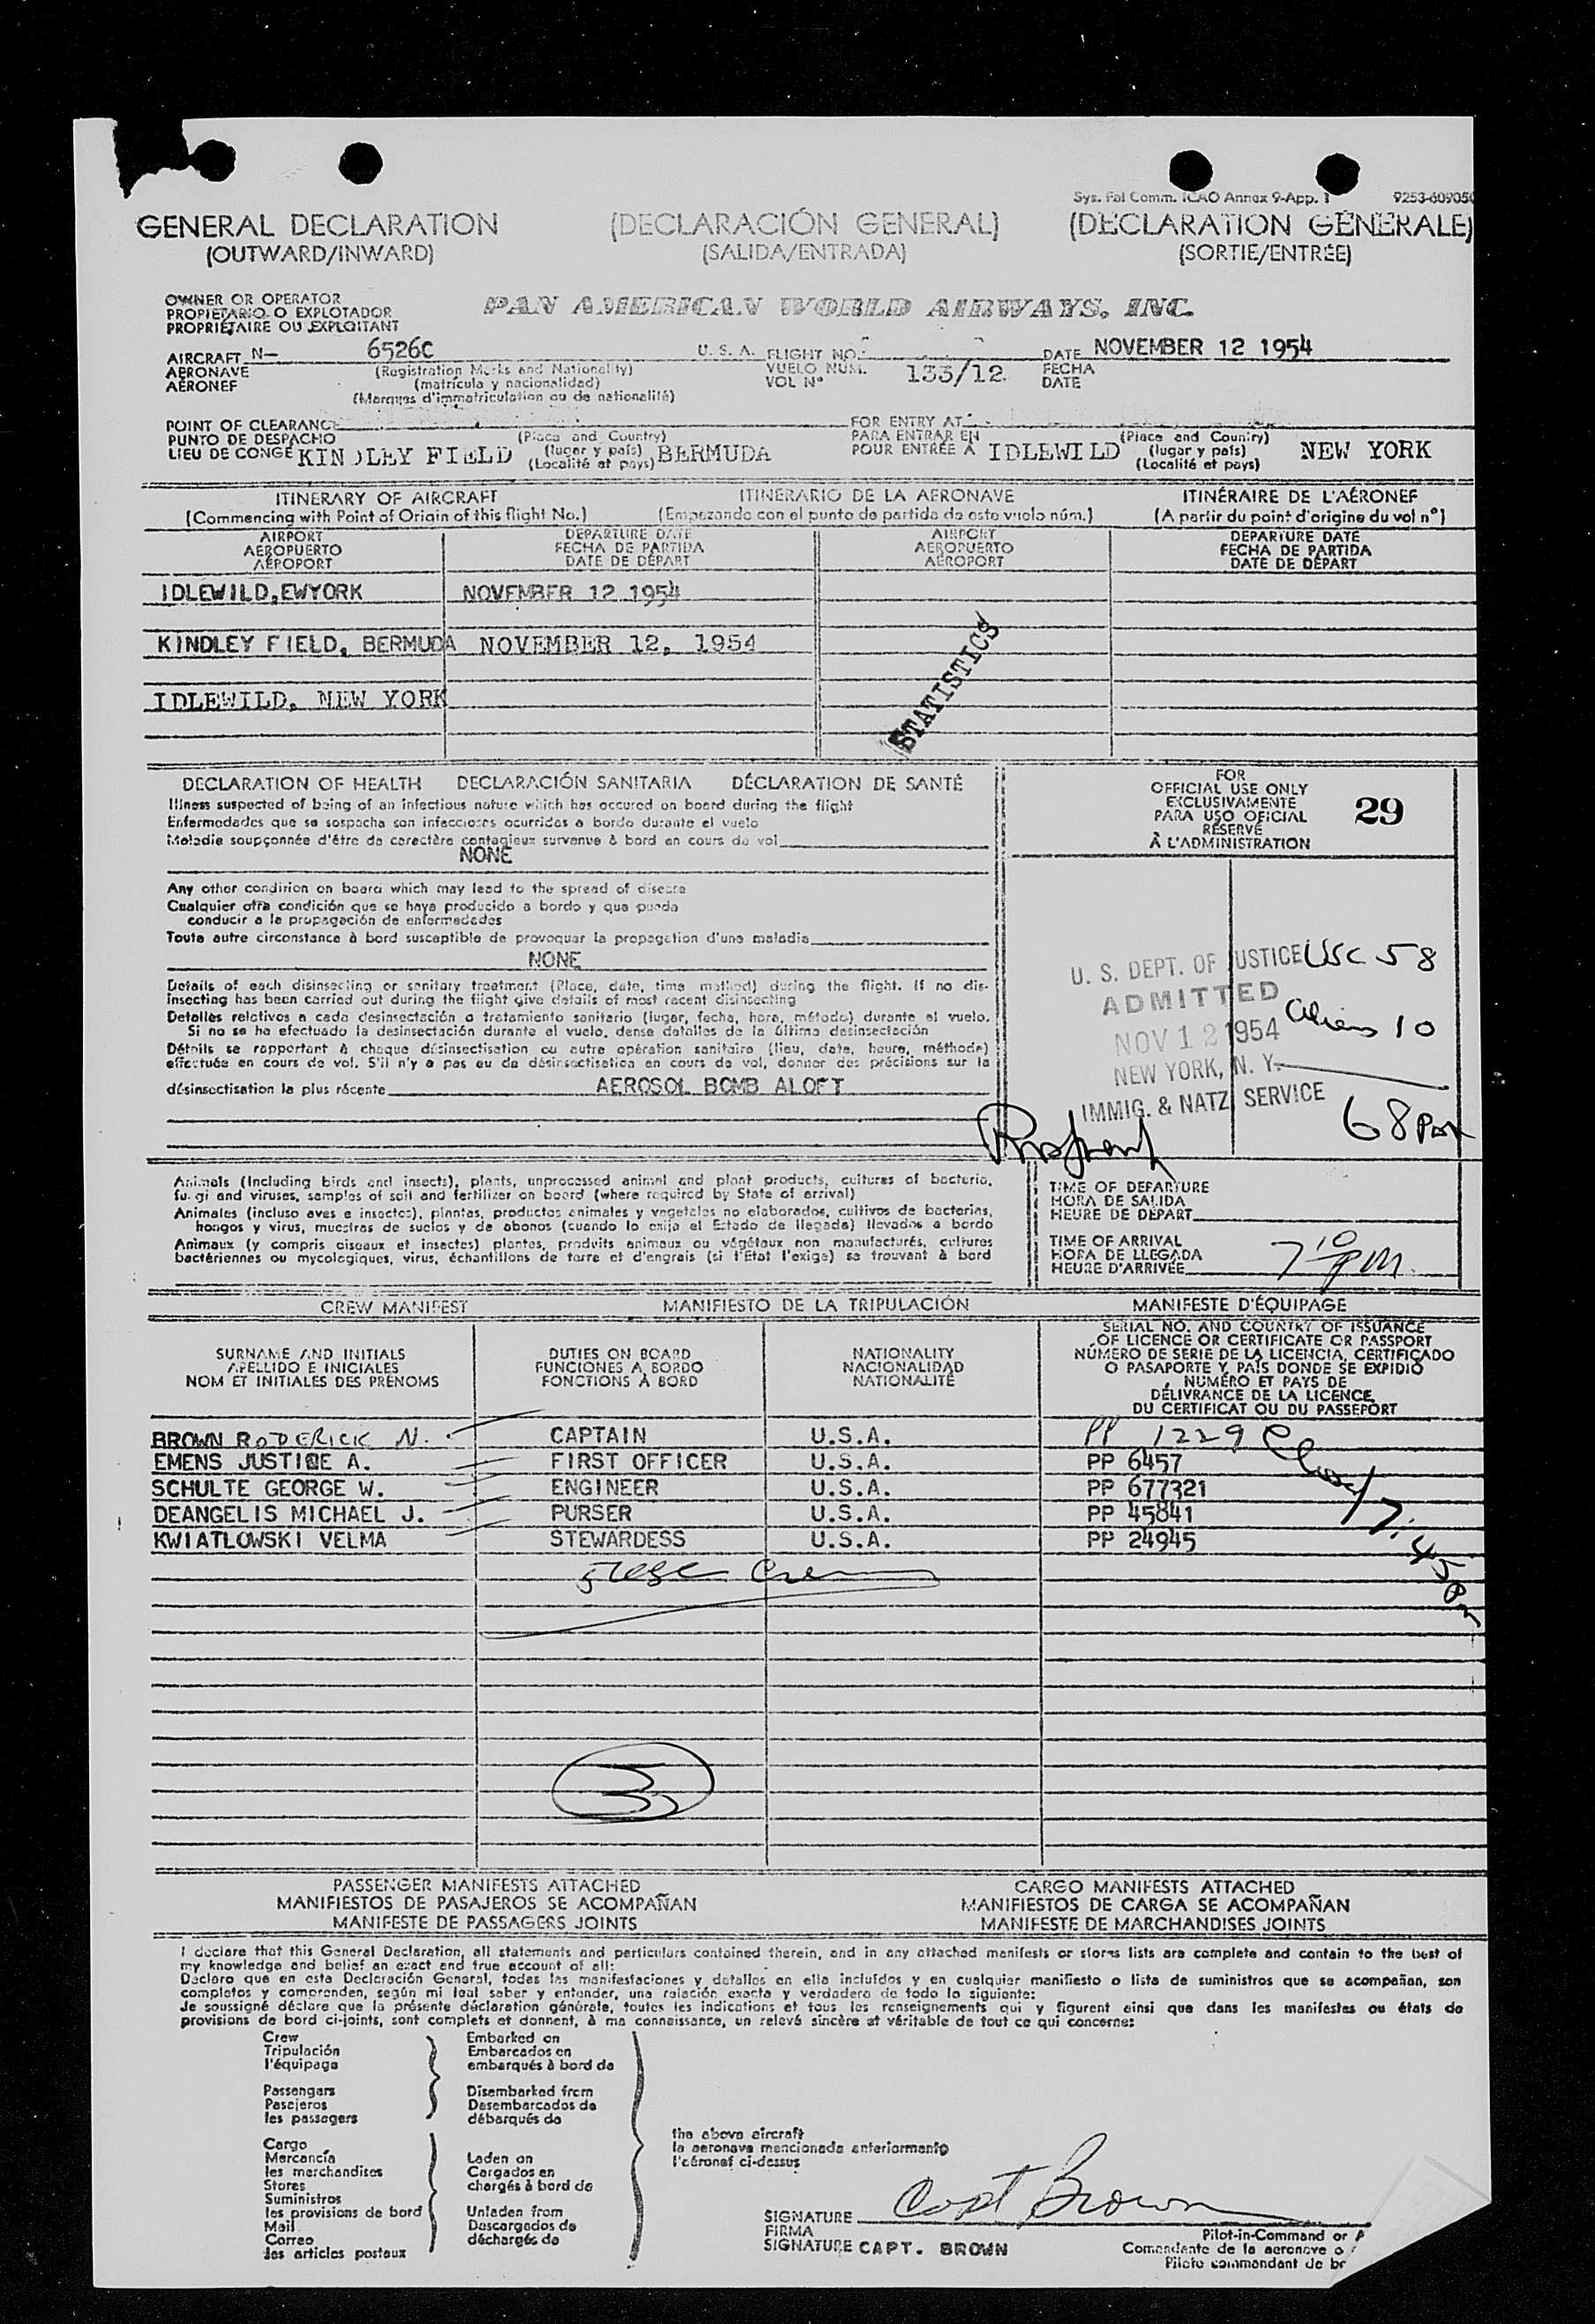 Sys. Fal Comm. ICAO Annex 9-App. 1 9253-609050
GENERAL DECLARATION (DECLARACIÓN GENERAL) (DÉCLARATION GÉNÉRALE)
(OUTWARD/INWARD) (SALIDA/ENTRADA) (SORTIE/ENTRÉE)
OWNER OR OPERATOR
PROPIETARIO O EXPLOTADOR
PROPRIÉTAIRE OU EXPLOITANT
PAN AMERICAN WORLD AIRWAYS, INC.
AIRCRAFT N- 6526C U. S. A. FLIGHT NO. DATE NOVEMBER 12 1954
AERONAVE (Registration Marks and Nationality) VUELO NÚM. 133/12 FECHA
AÉRONEF (matrícula y nacionalidad) VOL N° DATE
(Marques d'immatriculation ou de nationalité)
POINT OF CLEARANCE FOR ENTRY AT
PUNTO DE DESPACHO (Place and Country) PARA ENTRAR EN (Place and Country)
LIEU DE CONGÉ KINDLEY FIELD (lugar y país) BERMUDA POUR ENTRÉE À IDLEWILD (lugar y país) NEW YORK
(Localité et pays) (Localité et pays)
ITINERARY OF AIRCRAFT ITINERARIO DE LA AERONAVE ITINÉRAIRE DE L'AÉRONEF
(Commencing with Point of Origin of this flight No.) (Empezando con el punto de partida de este vuelo núm.) (A partir du point d'origine du vol n°)
AIRPORT DEPARTURE DATE AIRPORT DEPARTURE DATE
AEROPUERTO FECHA DE PARTIDA AEROPUERTO FECHA DE PARTIDA
AÉROPORT DATE DE DÉPART AÉROPORT DATE DE DÉPART
IDLEWILD,EWYORK NOVEMBER 12 1954
KINDLEY FIELD, BERMUDA NOVEMBER 12, 1954
IDLEWILD, NEW YORK
STATISTICS
DECLARATION OF HEALTH DECLARACIÓN SANITARIA DÉCLARATION DE SANTÉ
Illness suspected of being of an infectious nature which has occured on board during the flight
Enfermedades que se sospecha son infecciosas ocurridas a bordo durante el vuelo
Maladie soupçonnée d'être de caractère contagieux survenue à bord en cours de vol
NONE
Any other condirion on board which may lead to the spread of disease
Cualquier otra condición que se haya producido a bordo y que pueda
conducir a la propagación de enfermedades
Toute autre circonstance à bord susceptible de provoquer la propagation d'une maladie
NONE
Details of each disinsecting or sanitary treatment (Place, date, time method) during the flight. If no dis-
insecting has been carried out during the flight give details of most recent disinsecting
Detalles relativos a cada desinsectación o tratamiento sanitario (lugar, fecha, hora, método) durante el vuelo.
Si no se ha efectuado la desinsectación durante el vuelo, dense detalles de la última desinsectación
Détails se rapportant à chaque désinsectisation ou autre opération sanitaire (lieu, date, heure, méthode)
effectuée en cours de vol. S'il n'y a pas eu de désinsectisation en cours de vol, donner des précisions sur la
désinsectisation la plus récente AEROSOL BOMB ALOFT
FOR
OFFICIAL USE ONLY
EXCLUSIVAMENTE
PARA USO OFICIAL
RÉSERVÉ
À L'ADMINISTRATION
29
U. S. DEPT. OF JUSTICE USC 58
ADMITTED Aliens 10
NOV 12 1954
NEW YORK, N. Y.
IMMIG. & NATZ. SERVICE
68
Animals (Including birds and insects), plants, unprocessed animal and plant products, cultures of bacteria,
fungi and viruses, samples of soil and fertilizer on board (where required by State of arrival)
Animales (incluso aves e insectos), plantas, productos animales y vegetales no elaborados, cultivos de bacterias,
hongos y virus, muestras de suelos y de abonos (cuando lo exija el Estado de llegada) llevados a bordo
Animaux (y compris oiseaux et insectes) plantes, produits animaux ou végétaux non manufacturés, cultures
bactériennes ou mycologiques, virus, échantillons de terre et d'engrais (si l'État l'exige) se trouvant à bord
TIME OF DEPARTURE
HORA DE SALIDA
HEURE DE DÉPART
TIME OF ARRIVAL
HORA DE LLEGADA
HEURE D'ARRIVÉE 7 10 PM
CREW MANIFEST MANIFIESTO DE LA TRIPULACIÓN MANIFESTE D'ÉQUIPAGE
SURNAME AND INITIALS DUTIES ON BOARD NATIONALITY
APELLIDO E INICIALES FUNCIONES A BORDO NACIONALIDAD
NOM ET INITIALES DES PRÉNOMS FONCTIONS À BORD NATIONALITÉ
SERIAL NO. AND COUNTRY OF ISSUANCE
OF LICENCE OR CERTIFICATE OR PASSPORT
NÚMERO DE SERIE DE LA LICENCIA, CERTIFICADO
O PASAPORTE Y PAÍS DONDE SE EXPIDIÓ
NUMÉRO ET PAYS DE
DÉLIVRANCE DE LA LICENCE,
DU CERTIFICAT OU DU PASSEPORT
BROWN RODERICK N. CAPTAIN U.S.A. PP 1229
EMENS JUSTICE A. FIRST OFFICER U.S.A. PP 6457
SCHULTE GEORGE W. ENGINEER U.S.A. PP 677321
DEANGELIS MICHAEL J. PURSER U.S.A. PP 45841
KWIATLOWSKI VELMA STEWARDESS U.S.A. PP 24945
7:45 pm
5 USC Crew
PASSENGER MANIFESTS ATTACHED CARGO MANIFESTS ATTACHED
MANIFIESTOS DE PASAJEROS SE ACOMPAÑAN MANIFIESTOS DE CARGA SE ACOMPAÑAN
MANIFESTE DE PASSAGERS JOINTS MANIFESTE DE MARCHANDISES JOINTS
I declare that this General Declaration, all statements and particulars contained therein, and in any attached manifests or stores lists are complete and contain to the best of
my knowledge and belief an exact and true account of all:
Declaro que en esta Declaración General, todas las manifestaciones y detalles en ella incluídos y en cualquier manifiesto o lista de suministros que se acompañan, son
completos y comprenden, según mi leal saber y entender, una relación exacta y verdadera de todo lo siguiente:
Je soussigné déclare que la présente déclaration générale, toutes les indications et tous les renseignements qui y figurent ainsi que dans les manifestes ou états de
provisions de bord ci-joints, sont complets et donnent, à ma connaissance, un relevé sincère et véritable de tout ce qui concerne:
Crew Embarked on
Tripulación Embarcados en
l'équipage embarqués à bord de
Passengers Disembarked from
Pasajeros Desembarcados de
les passagers débarqués de
the above aircraft
la aeronave mencionada anteriormente
l'aéronef ci-dessus
Cargo
Mercancía Laden on
les merchandises Cargados en
Stores chargés à bord de
Suministros
les provisions de bord Unladen from
Mail Descargados de
Correo déchargés de
les articles postaux
SIGNATURE Capt Brown
FIRMA Pilot-in-Command or A
SIGNATURE CAPT. BROWN Comandante de la aeronave o
Pilote commandant de bo